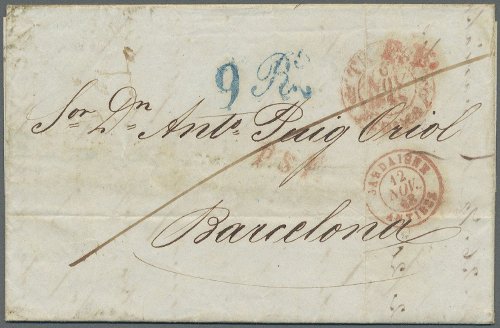 9 Rs
P.P.
8
NOV
Sor Dn Anto Puig Oriol
SARDAIGNE
12
NOV.
Barcelona